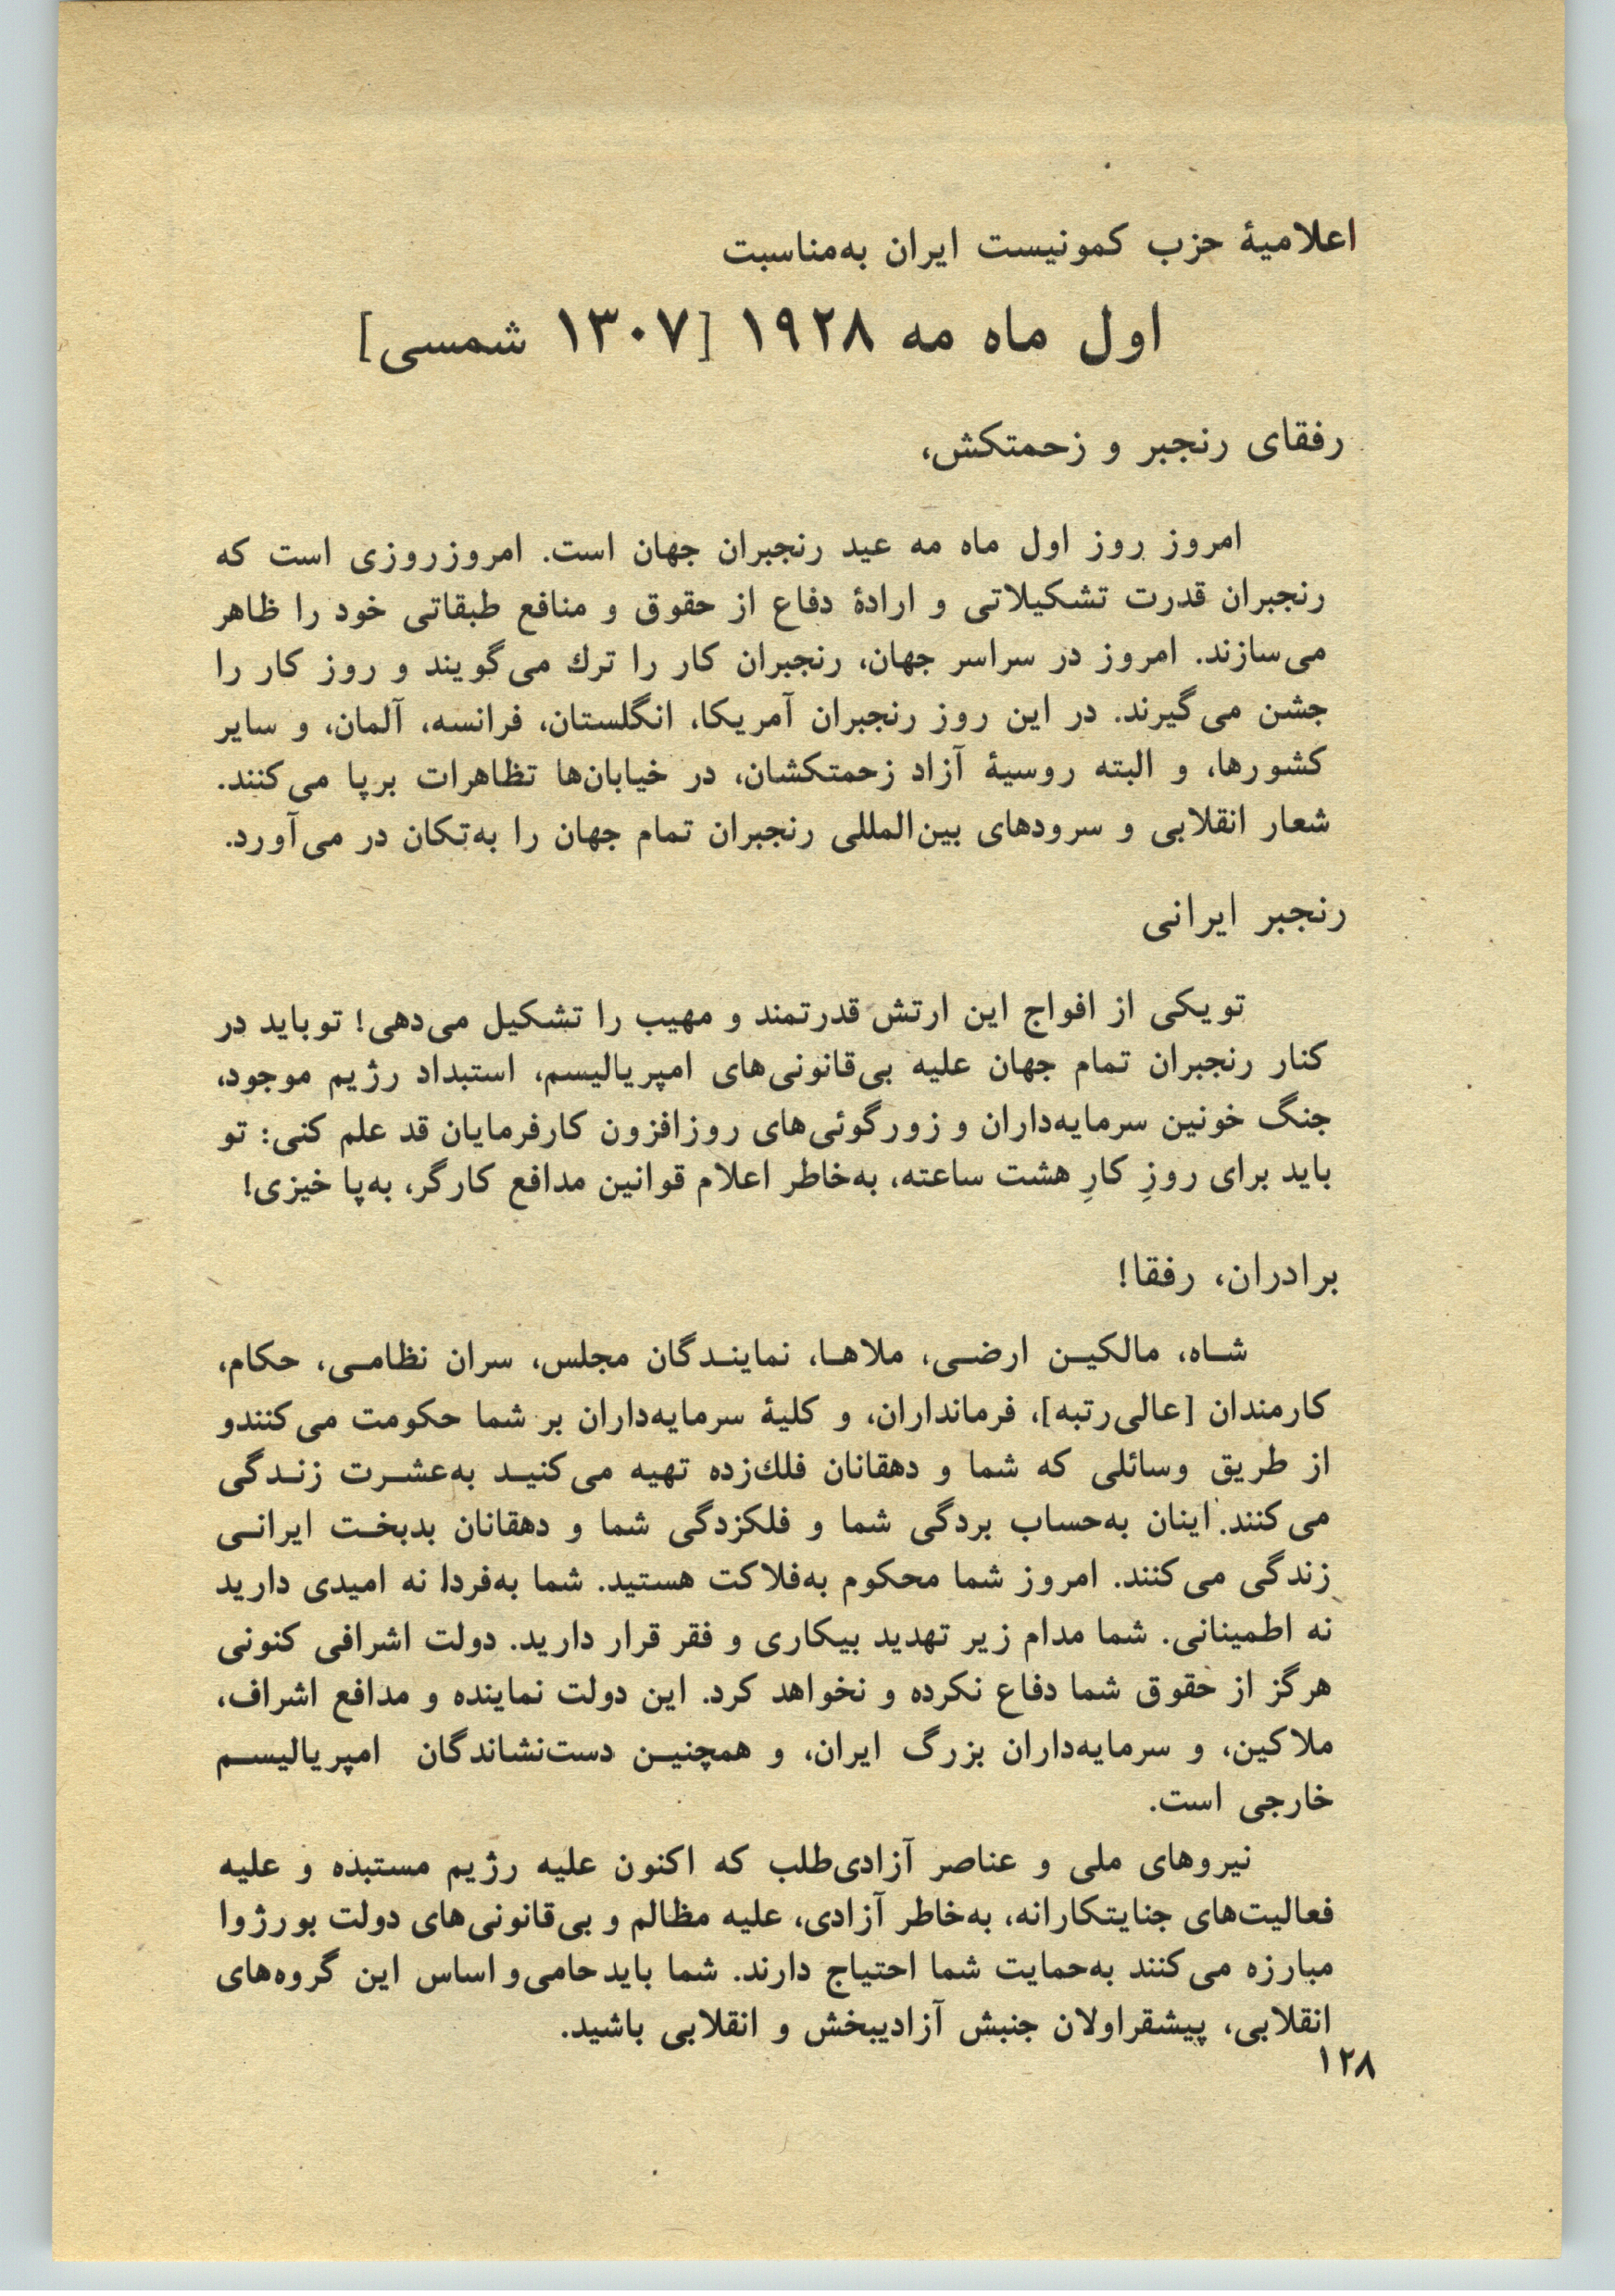 اعلامیهٔ حزب کمونیست ایران به‌مناسبت
اول ماه مه ۱۹۲۸ [۱۳۰۷ شمسی]
رفقای رنجبر و زحمتکش،
امروز روز اول ماه مه عید رنجبران جهان است. امروزروزی است که
رنجبران قدرت تشکیلاتی و ارادهٔ دفاع از حقوق و منافع طبقاتی خود را ظاهر
می‌سازند. امروز در سراسر جهان، رنجبران کار را ترك می‌گویند و روز کار را
جشن می‌گیرند. در این روز رنجبران آمریکا، انگلستان، فرانسه، آلمان، و سایر
کشورها، و البته روسیهٔ آزاد زحمتکشان، در خیابان‌ها تظاهرات برپا می‌کنند.
شعار انقلابی و سرودهای بین‌المللی رنجبران تمام جهان را به‌تکان در می‌آورد.
رنجبر ایرانی
تو یکی از افواج این ارتش قدرتمند و مهیب را تشکیل می‌دهی! تو باید در
کنار رنجبران تمام جهان علیه بی‌قانونی‌های امپریالیسم، استبداد رژیم موجود،
جنگ خونین سرمایه‌داران و زورگوئی‌های روزافزون کارفرمایان قد علم کنی: تو
باید برای روزِ کارِ هشت ساعته، به‌خاطر اعلام قوانین مدافع کارگر، به‌پا خیزی!
برادران، رفقا!
شاه، مالکین ارضی، ملاها، نمایندگان مجلس، سران نظامی، حکام،
کارمندان [عالی‌رتبه]، فرمانداران، و کلیهٔ سرمایه‌داران بر شما حکومت می‌کنندو
از طریق وسائلی که شما و دهقانان فلك‌زده تهیه می‌کنید به‌عشرت زندگی
می‌کنند. اینان به‌حساب بردگی شما و فلکزدگی شما و دهقانان بدبخت ایرانی
زندگی می‌کنند. امروز شما محکوم به‌فلاکت هستید. شما به‌فردا نه امیدی دارید
نه اطمینانی. شما مدام زیر تهدید بیکاری و فقر قرار دارید. دولت اشرافی کنونی
هرگز از حقوق شما دفاع نکرده و نخواهد کرد. این دولت نماینده و مدافع اشراف،
ملاکین، و سرمایه‌داران بزرگ ایران، و همچنین دست‌نشاندگان امپریالیسم
خارجی است.
نیروهای ملی و عناصر آزادی‌طلب که اکنون علیه رژیم مستبده و علیه
فعالیت‌های جنایتکارانه، به‌خاطر آزادی، علیه مظالم و بی‌قانونی‌های دولت بورژوا
مبارزه می‌کنند به‌حمایت شما احتیاج دارند. شما باید حامی و اساس این گروه‌های
انقلابی، پیشقراولان جنبش آزادیبخش و انقلابی باشید.
۱۲۸